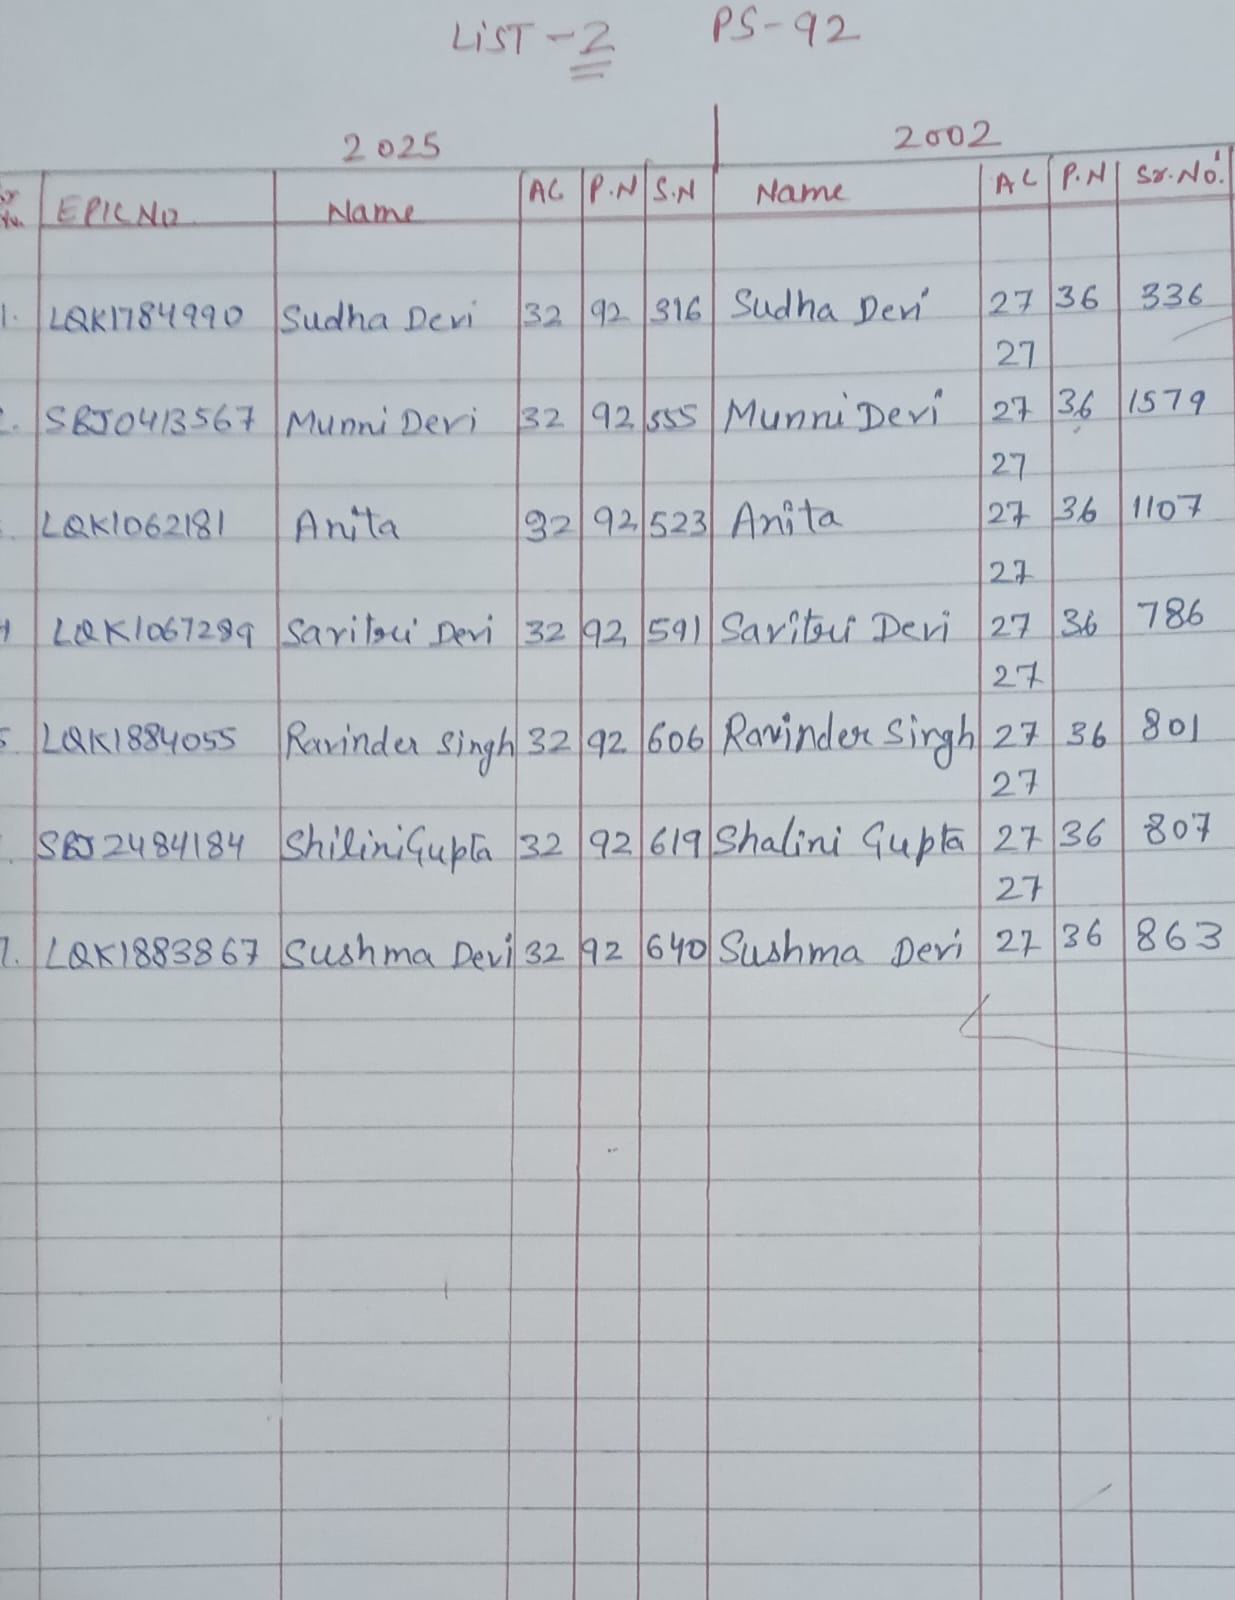 LIST - 2 PS-92
2025 2002
EPIC NO Name AC P.N S.N Name AC P.N Sr.No.
1. LQK1784990 Sudha Devi 32 92 316 Sudha Devi 27 36 336
27
2. SBJ0413567 Munni Devi 32 92 555 Munni Devi 27 36 1579
27
LQK1062181 Anita 32 92 523 Anita 27 36 1107
27
4 LQK1067289 Savitri Devi 32 92 591 Savitri Devi 27 36 786
27
5 LQK1884055 Ravinder Singh 32 92 606 Ravinder Singh 27 36 801
27
SBJ2484184 Shilini Gupta 32 92 619 Shalini Gupta 27 36 807
27
7. LQK1883867 Sushma Devi 32 92 640 Sushma Devi 27 36 863